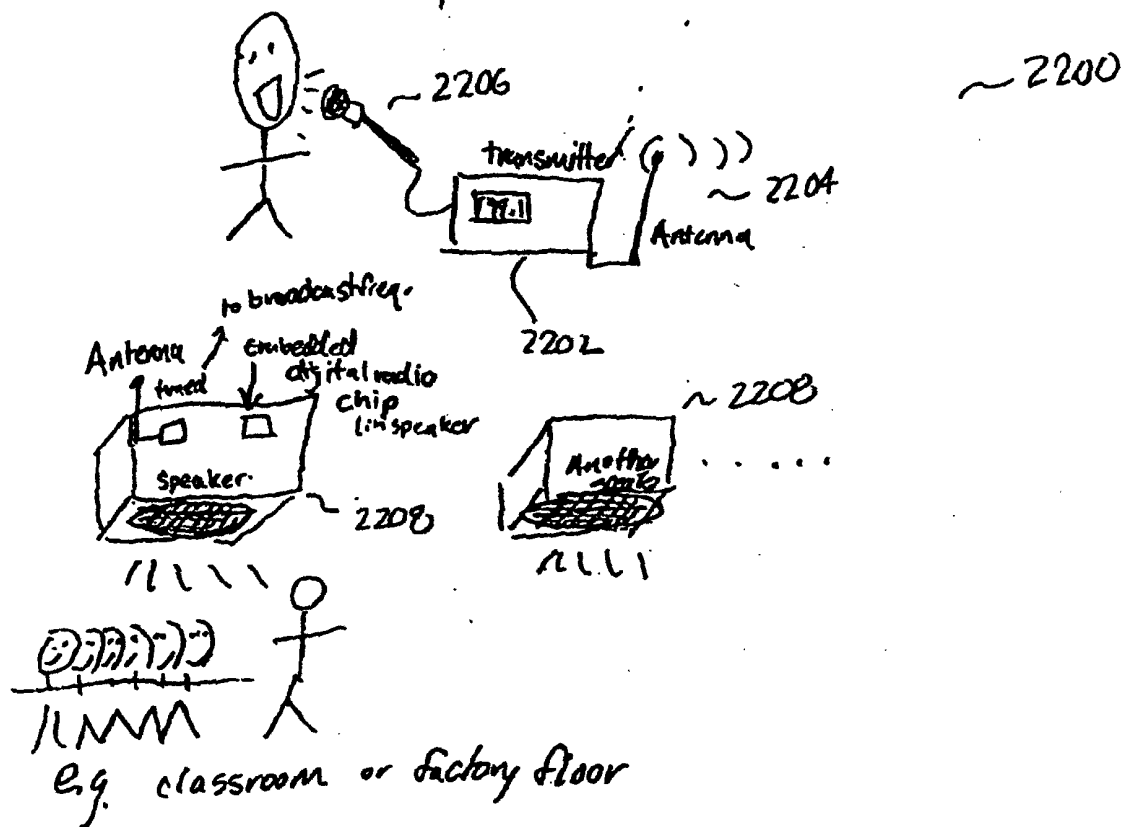 2206
2200
transmitter
99.1
2204
Antenna
2202
to broadcast freq.
Antenna
tuned
Embedded
digital radio
chip
(in speaker
2208
Speaker.
2208
Another
e.g. classroom or factory floor